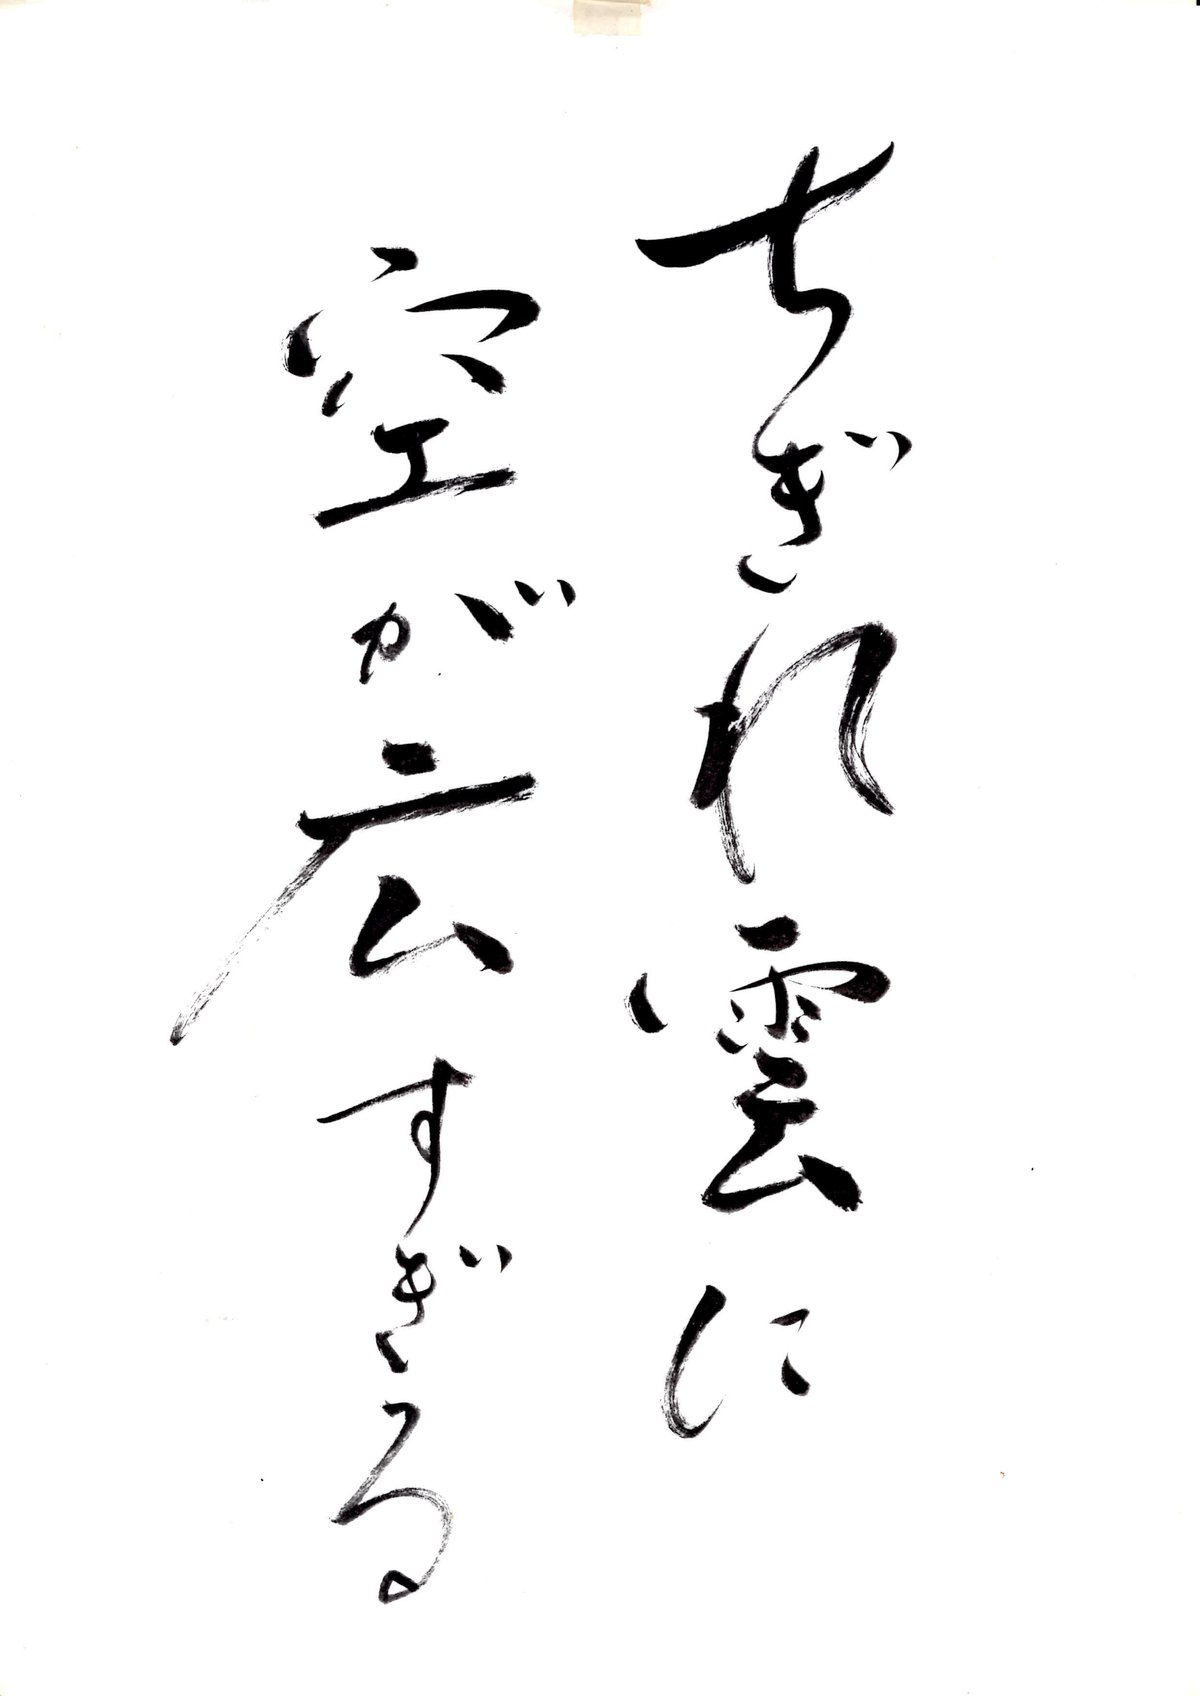 ちぎれ雲に
空が広すぎる